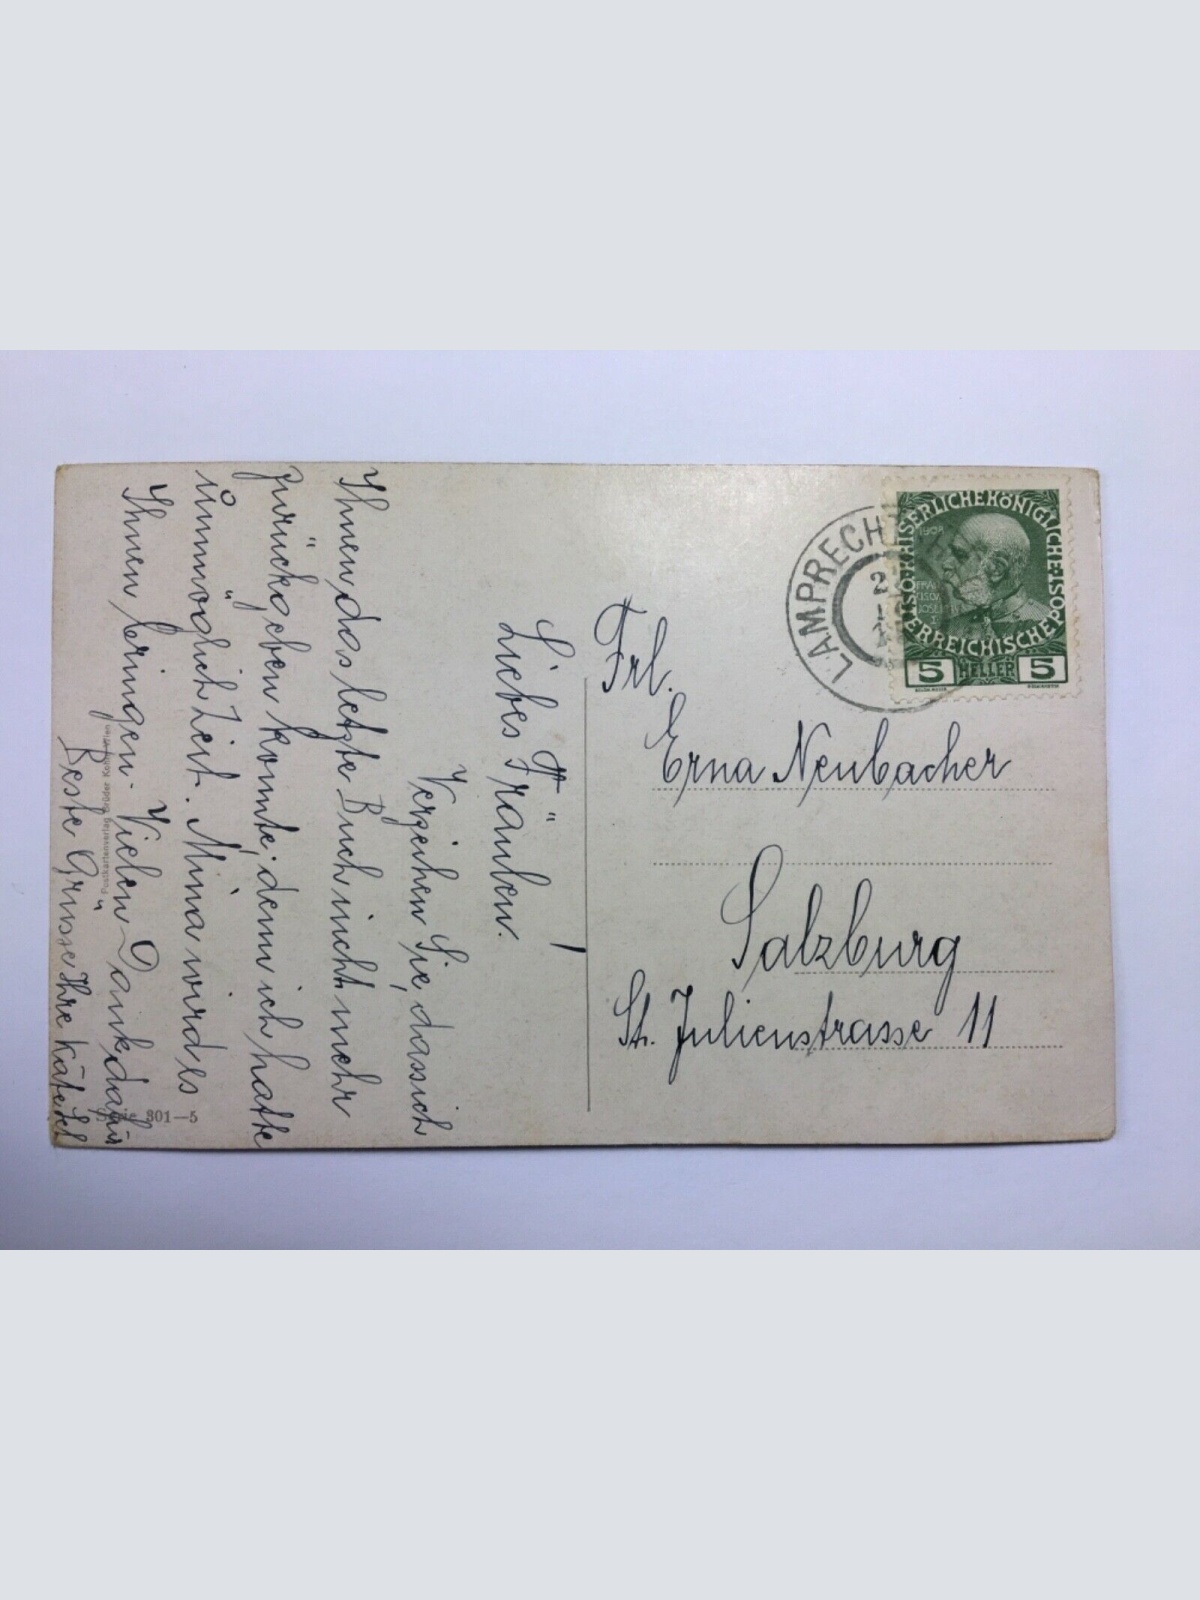 Liebes Fräulein!
Verzeihen Sie, dass ich
Ihnen das letzte Buch nicht mehr
zurückgeben konnte, denn ich hatte
unmöglich Zeit. Mina wird es
Ihnen bringen. Vielen Dank dafür
Beste Grüsse Ihre Käte
Frl.
Erna Neubacher
Salzburg
St. Julienstrasse 11
LAMPRECHT
KAISERLICHE KÖNIGLICHE ÖSTERREICHISCHE POST
5 HELLER 5
Postkartenverlag Brüder Kohn Wien
Serie 301—5